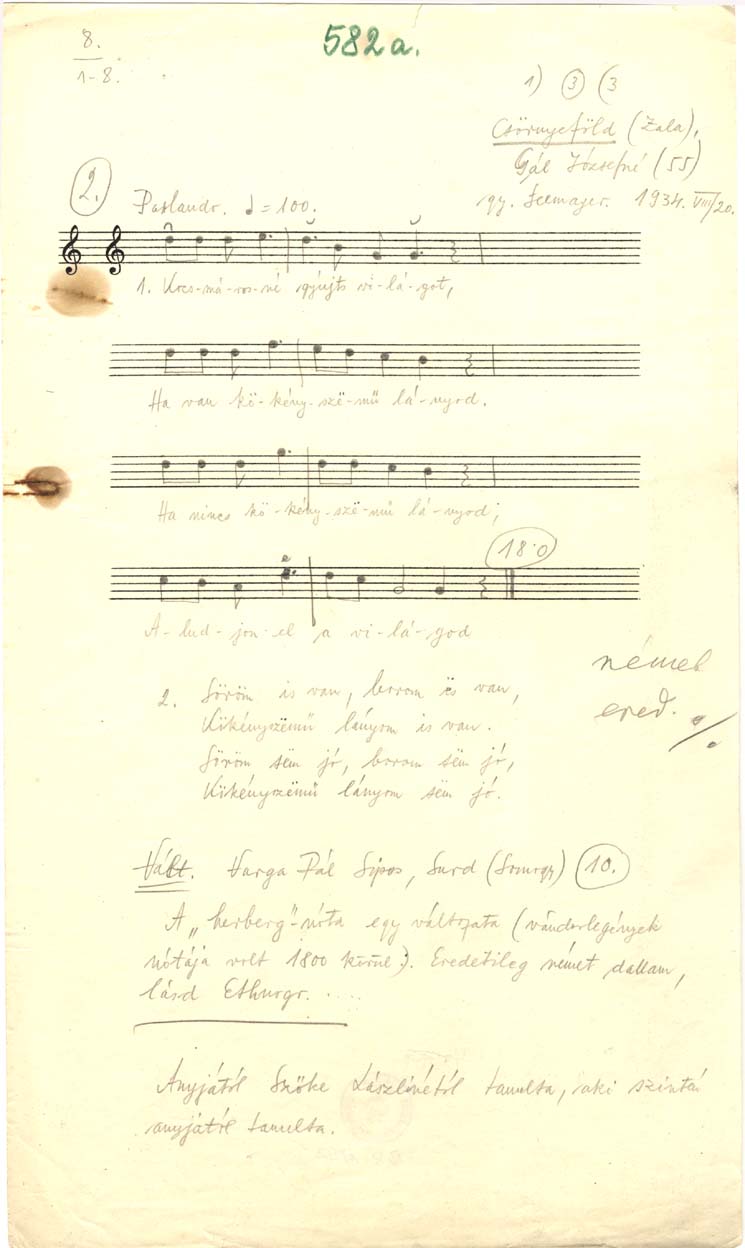 582a.
8.
1-8.
1) 3 (3
Csörnyeföld (Zala),
Gál Józsefné (55)
gy. Seemayer. 1934. VIII/20.
2.
Parlando. ♩=100.
1. Kocs-má-ros-né gyújts vi-lá-got,
Ha van kö-kény-szë-mű lá-nyod.
Ha nincs kö-kény-szë-mű lá-nyod;
18·0
A-lud-jon el a vi-lá-god
német
ered. %
2. Söröm is van, borom is van,
Kökényszëmű lányom is van.
Söröm sëm jó, borom sëm jó,
Kökényszëmű lányom sëm jó.
Vált. Varga Pál Sipos, Surd (Somogy) 10.
A „herberg"-nóta egy változata (vándorlegények
nótája volt 1800 körül). Eredetileg német dallam,
lásd Ethnogr. ....
Anyjától Szőke Lászlónétól tanulta, aki szintén
anyjától tanulta.